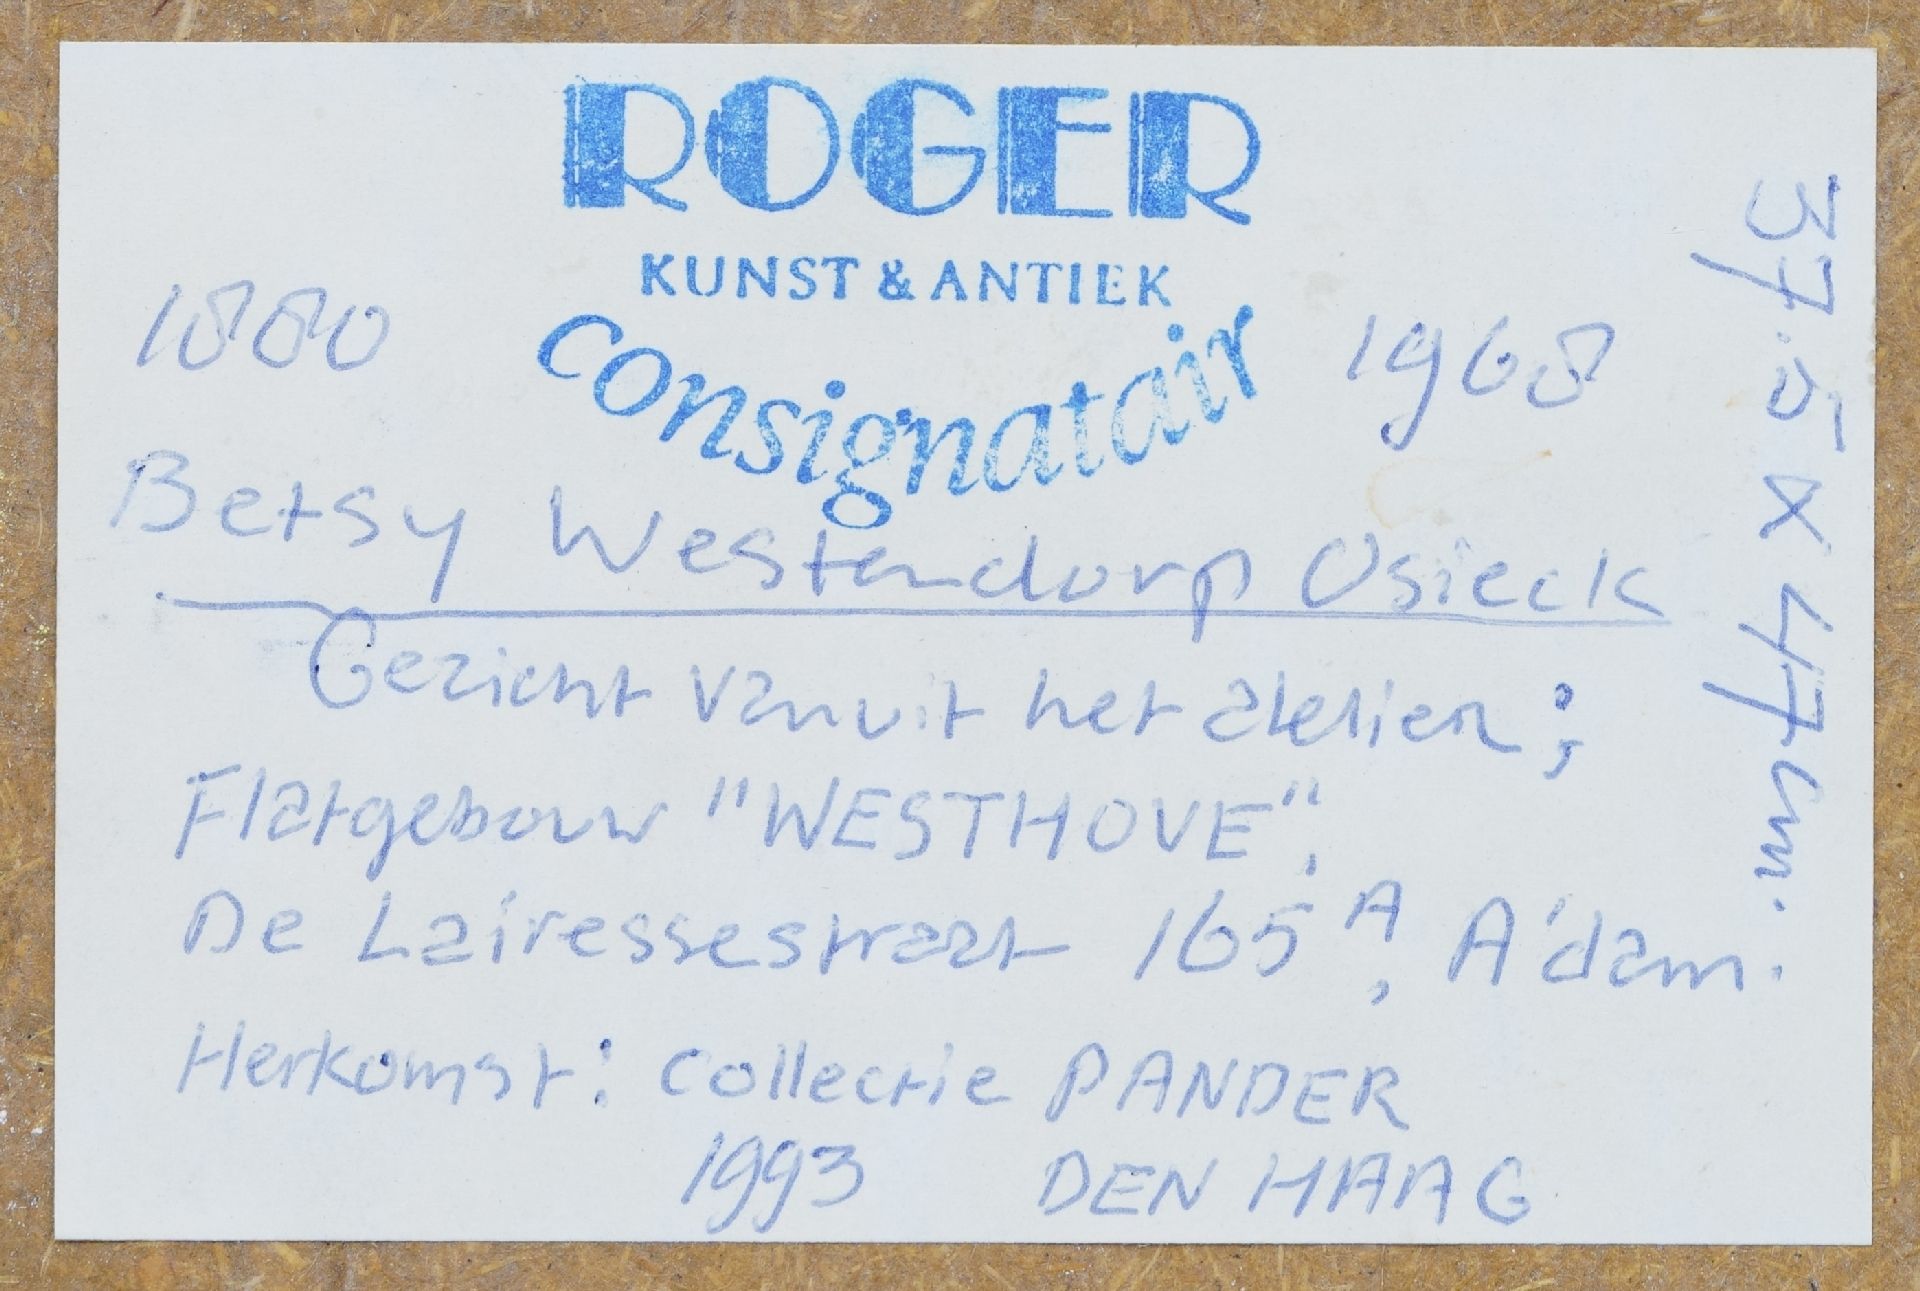 ROGER
KUNST & ANTIEK
consignatair
1880 1968
Betsy Westendorp Osieck
Gezicht vanuit het atelier;
Flatgebouw "WESTHOVE",
De Lairessestraat 165 A, A'dam.
Herkomst: collectie PANDER
1993 DEN HAAG
37.5 x 47 cm.